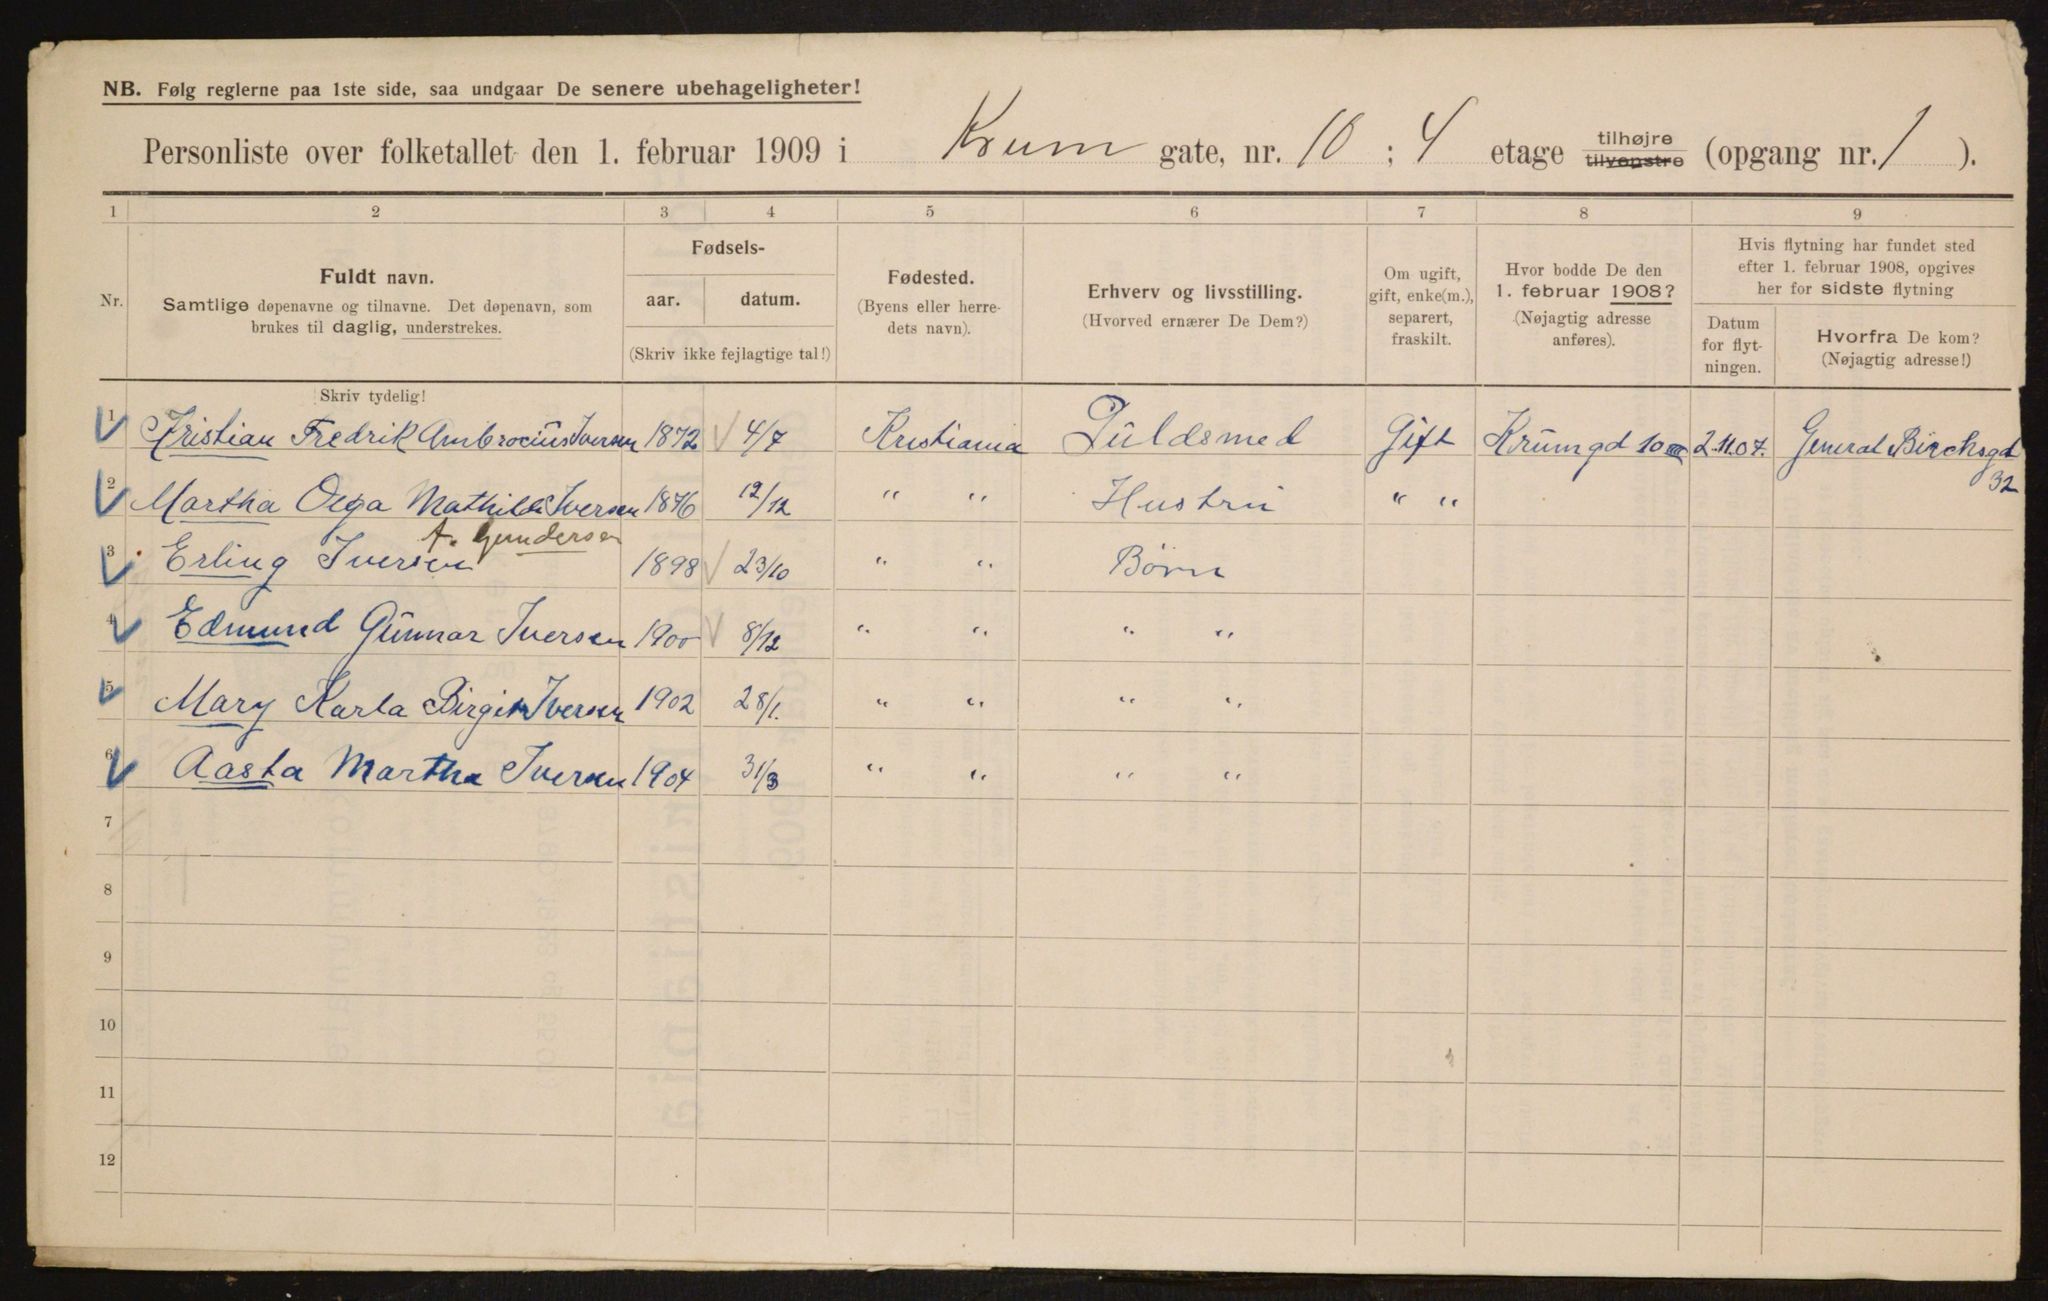 NB. Følg reglerne paa 1ste side, saa undgaar De senere ubehageligheter!
Personliste over folketallet den 1. februar 1909 i Krum gate, nr. 10 ; 4 etage tilhøjre tilvenstre (opgang nr. 1 ).
1 2 3 4 5 6 7 8 9
Nr.
Fuldt navn.
Samtlige døpenavne og tilnavne. Det døpenavn, som
brukes til daglig, understrekes.
Fødsels-
aar. datum.
(Skriv ikke fejlagtige tal!)
Fødested.
(Byens eller herre-
dets navn).
Erhverv og livsstilling.
(Hvorved ernærer De Dem?)
Om ugift,
gift, enke(m.),
separert,
fraskilt.
Hvor bodde De den
1. februar 1908?
(Nøjagtig adresse
anføres).
Hvis flytning har fundet sted
efter 1. februar 1908, opgives
her for sidste flytning
Datum
for flyt-
ningen.
Hvorfra De kom?
(Nøjagtig adresse!)
Skriv tydelig!
1 Kristian Fredrik Ambrocius Iversen 1872 4/7 Kristiania Guldsmed Gift Krumgd 10 2.11.07. General Birchsgd
32
2 Martha Olga Mathilde Iversen 1876 12/12 " " Hustru " "
f. Gundersen
3 Erling Iversen 1898 23/10 " " Børn
4 Edmund Gunnar Iversen 1900 8/12 " " " "
5 Mary Karla Birgit Iversen 1902 28/1. " " " "
6 Aasta Martha Iversen 1904 31/3 " " " "
7
8
9
10
11
12